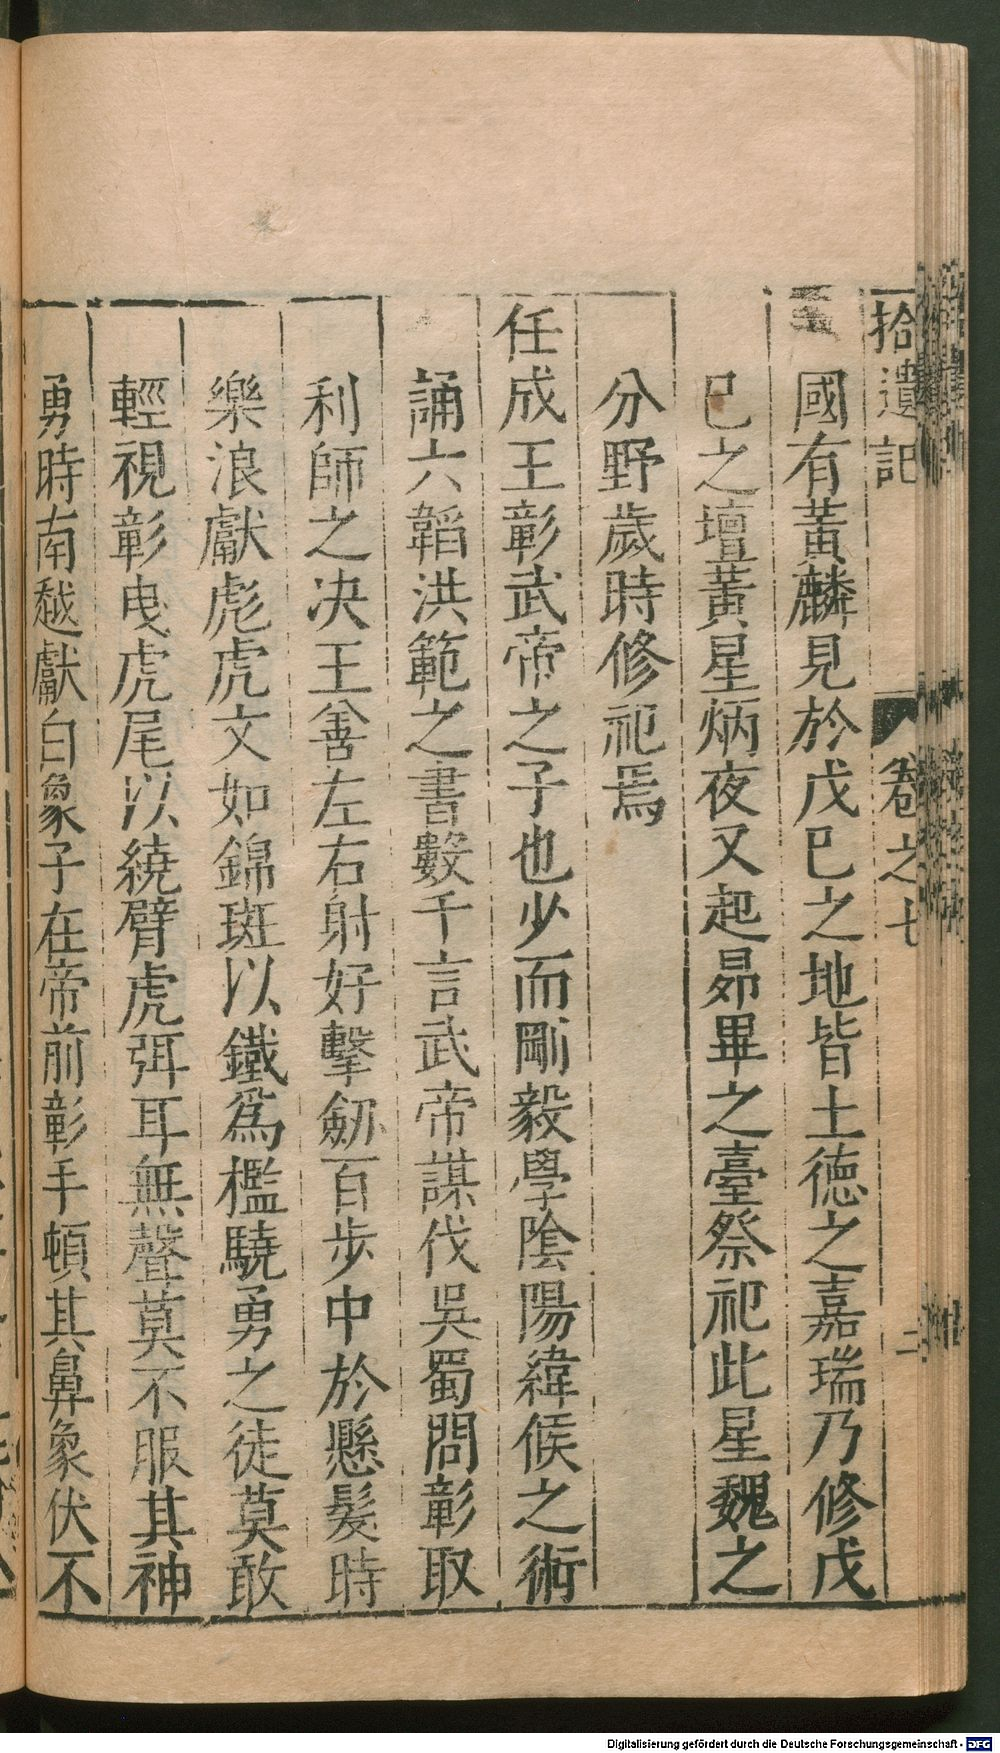 拾遺記 卷之七 二
國有黃麟見於戊巳之地皆土德之嘉瑞乃修戊
巳之壇黃星炳夜又起昴畢之臺祭祀此星魏之
分野歲時修祀焉
任成王彰武帝之子也少而剛毅學陰陽緯候之術
誦六韜洪範之書數千言武帝謀伐吳蜀問彰取
利師之决王善左右射好擊劒百步中於懸髮時
樂浪獻彪虎文如錦斑以鐵爲檻驍勇之徒莫敢
輕視彰曳虎尾以繞臂虎弭耳無聲莫不服其神
勇時南越獻白象子在帝前彰手頓其鼻象伏不
Digitalisierung gefördert durch die Deutsche Forschungsgemeinschaft - DFG